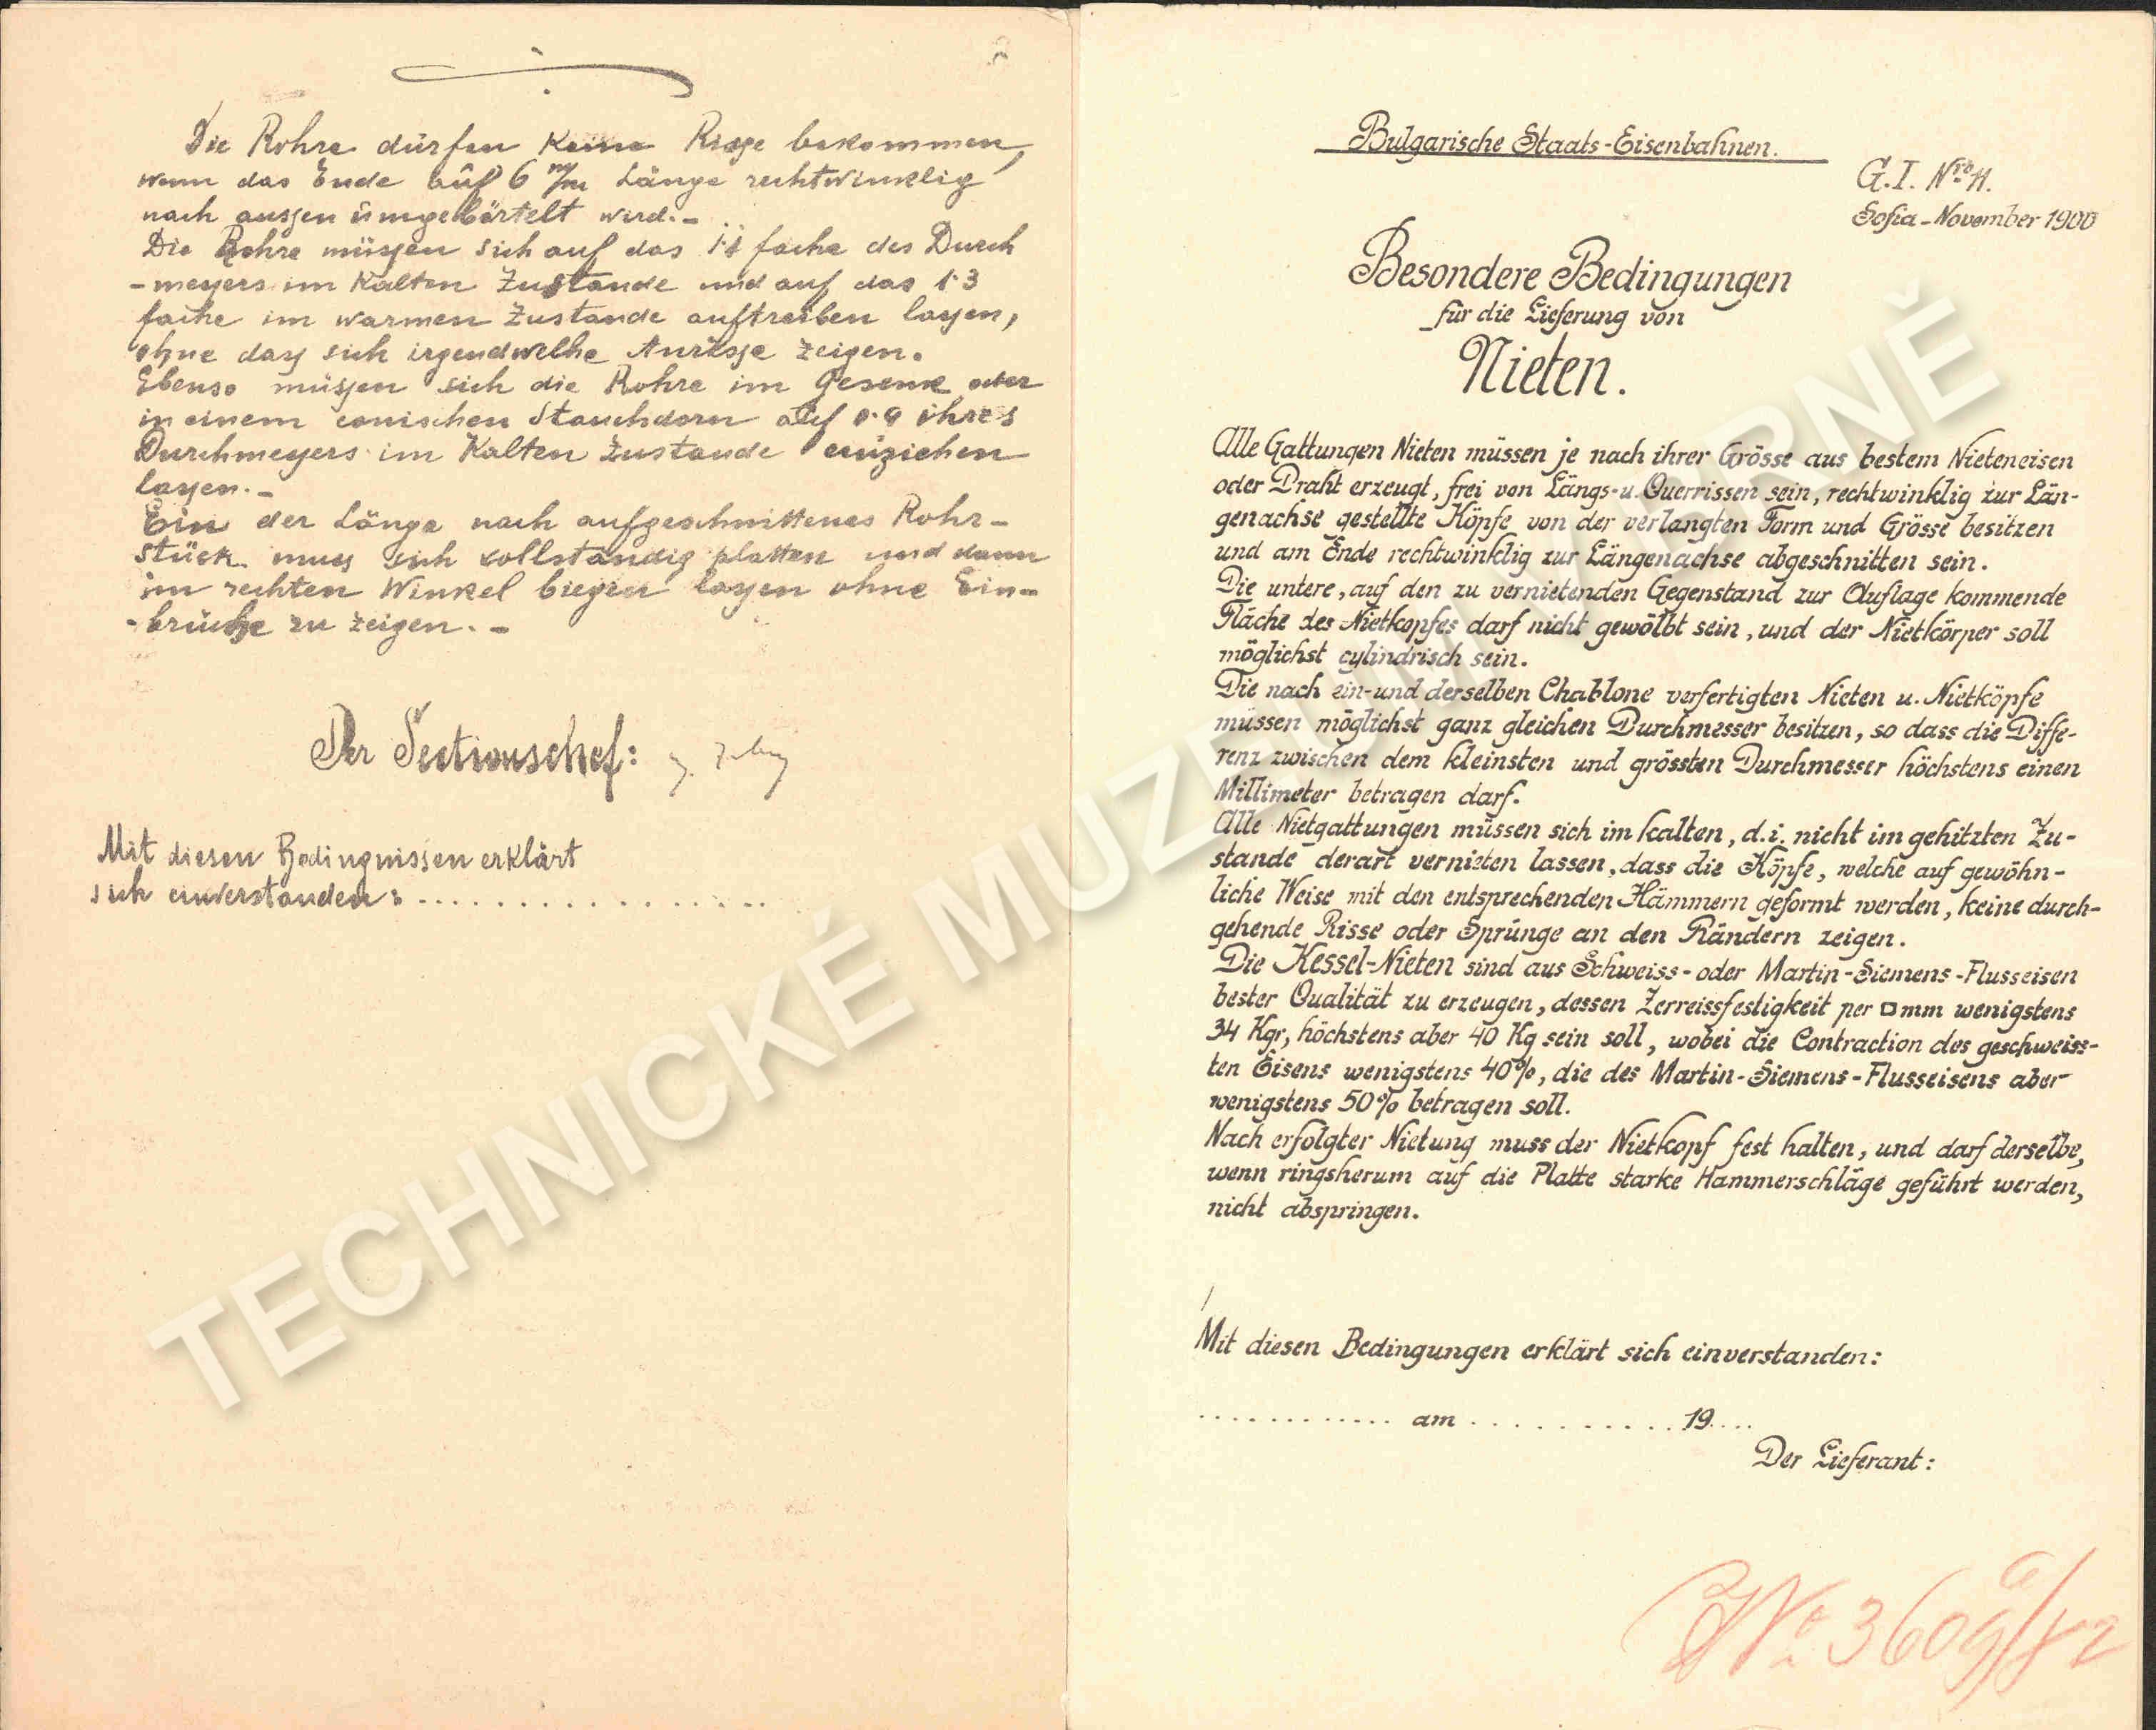 Die Rohre dürfen keine Risse bekommen,
wenn das Ende auf 6 m/m Länge rechtwinklig
nach aussen umgebörtelt wird.-
Die Rohre müssen sich auf das fache des Durch
-messers im Kalten Zustande und auf das 1·3
fache im warmen Zustande auftreiben lassen,
ohne dass sich irgendwelche Anrisse zeigen.
Ebenso müssen sich die Rohre im Gesenk oder
in einem conischen Stauchdorn auf 0·9 ihres
Durchmessers im Kalten Zustande einziehen
lassen.-
Ein der Länge nach aufgeschnittenes Rohr-
stück muss sich vollständig platten und dann
im rechten Winkel biegen lassen ohne Ein-
-brüche zu zeigen.-
Der Sectionschef:
Mit diesen Bedingnissen erklärt
sich einverstanden: . . . . . . . . . . . . . . . . .
Bulgarische Staats-Eisenbahnen.
G.I. Nro 11.
Sofia-November 1900
Besondere Bedingungen
für die Lieferung von
Nieten.
Alle Gattungen Nieten müssen je nach ihrer Grösse aus bestem Nieteneisen
oder Draht erzeugt, frei von Längs-u. Querrissen sein, rechtwinklig zur Län-
genachse gestellte Köpfe von der verlangten Form und Grösse besitzen
und am Ende rechtwinklig zur Längenachse abgeschnitten sein.
Die untere, auf den zu vernietenden Gegenstand zur Auflage kommende
Fläche des Nietkopfes darf nicht gewölbt sein, und der Nietkörper soll
möglichst cylindrisch sein.
Die nach ein-und derselben Chablone verfertigten Nieten u. Nietköpfe
müssen möglichst ganz gleichen Durchmesser besitzen, so dass die Diffe-
renz zwischen dem kleinsten und grössten Durchmesser höchstens einen
Millimeter betragen darf.
Alle Nietgattungen müssen sich im kalten, d.i. nicht im gehitzten Zu-
stande derart vernieten lassen, dass die Köpfe, welche auf gewöhn-
liche Weise mit den entsprechenden Hämmern geformt werden, keine durch-
gehende Risse oder Sprünge an den Rändern zeigen.
Die Kessel-Nieten sind aus Schweiss- oder Martin-Siemens-Flusseisen
bester Qualität zu erzeugen, dessen Zerreissfestigkeit per □mm wenigstens
34 Kgr, höchstens aber 40 Kg sein soll, wobei die Contraction des geschweiss-
ten Eisens wenigstens 40%, die des Martin-Siemens-Flusseisens aber
wenigstens 50% betragen soll.
Nach erfolgter Nietung muss der Nietkopf fest halten, und darf derselbe,
wenn ringsherum auf die Platte starke Hammerschläge geführt werden,
nicht abspringen.
Mit diesen Bedingungen erklärt sich einverstanden:
. . . . . . . . . . . . am . . . . . . . . . . . 19. . . .
Der Lieferant:
No 3609
TECHNICKÉ MUZEUM V BRNĚ